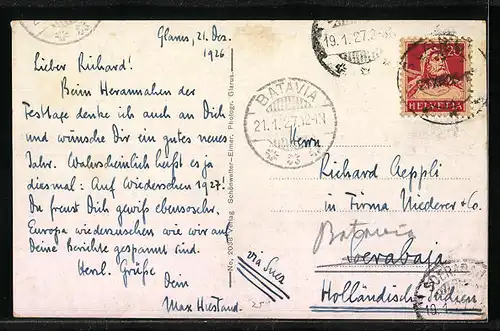 Glarus, 21. Dez.
1926
Lieber Richard!
Beim Herannahen der
Festtage denke ich auch an Dich
und wünsche Dir ein gutes neues
Jahr. Wahrscheinlich heißt es ja
diesmal: Auf Wiedersehen 1927!
Du freust Dich gewiß ebensosehr,
Europa wiederzusehen wie wir auf
Deine Berichte gespannt sind.
Herzl. Grüße
Dein
Max
No. 2038 Verlag Schönwetter-Elmer, Photogr. Glarus.
via Suez
19.1.27.
BATAVIA
21.1.27.12-1N
20
HELVETIA
Herrn
Richard Aeppli
in Firma Niederer & Co.
Batavia
Soerabaja
Holländisch Indien
SOERABAJA
19.1
25